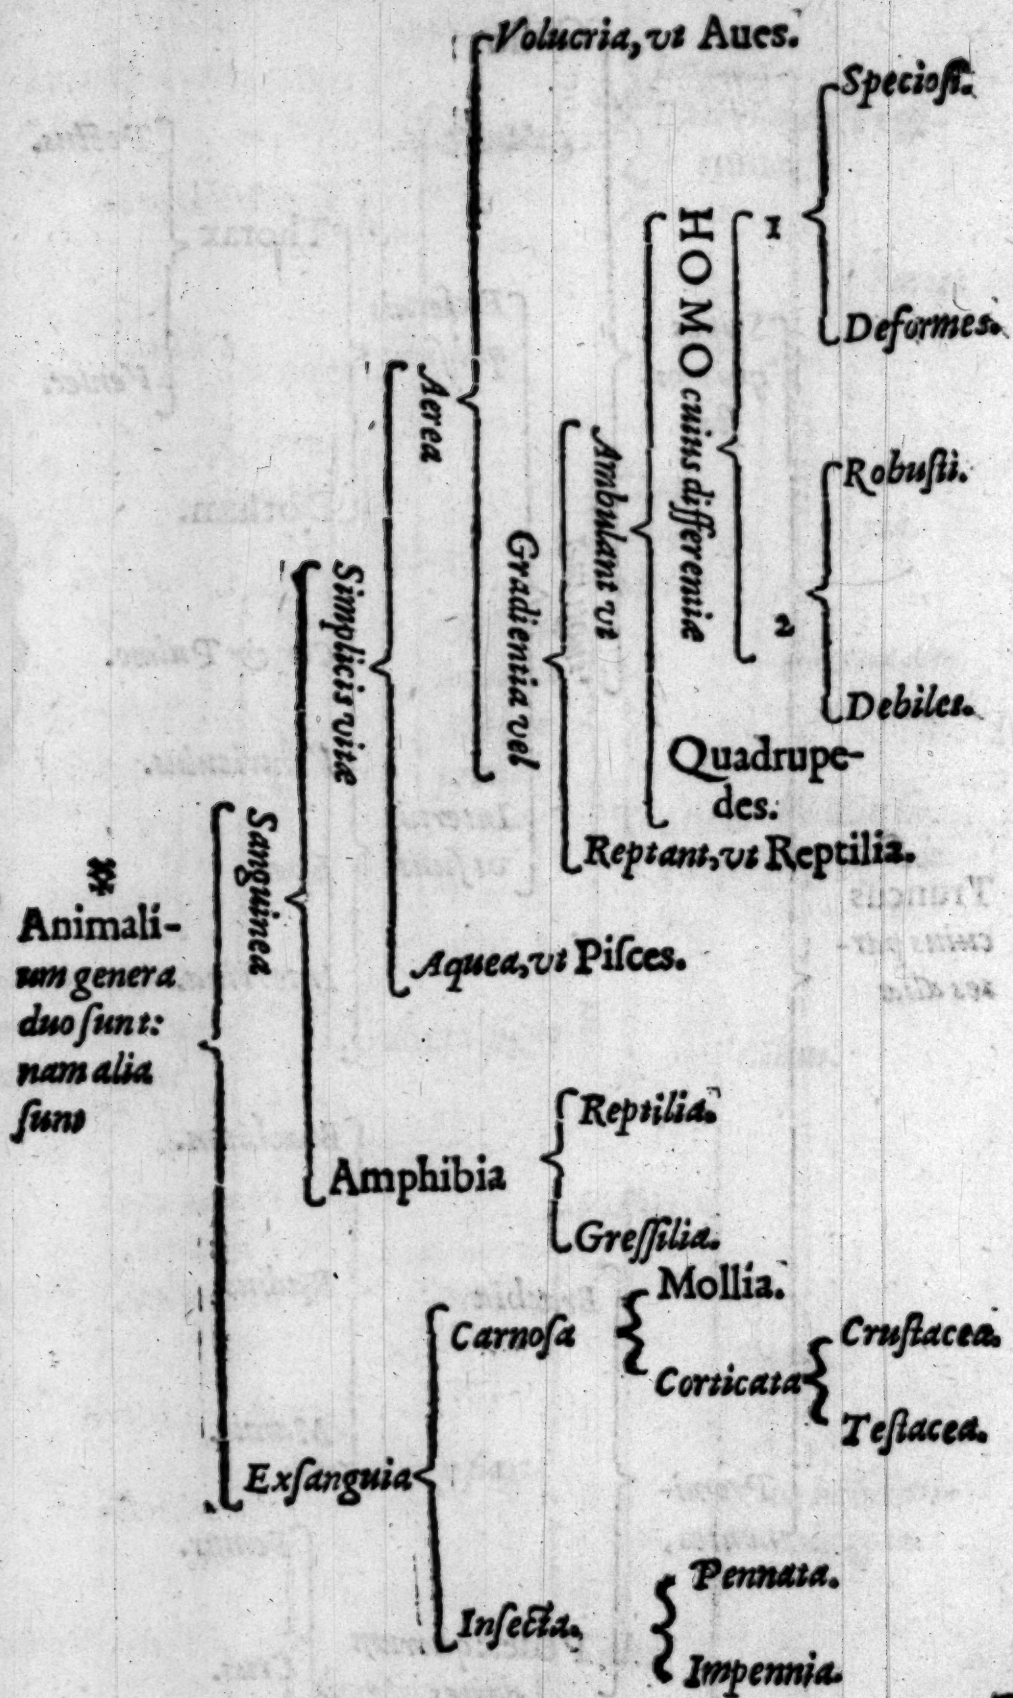 Animali-
um genera
duo ſunt:
nam alia
ſunt
Sanguinea
Simplicis vitæ
Aerea
Volucria, vt Aues.
Gradientia vel
Ambulant vt
HOMO cuius differentiæ
1
Specioſi.
Deformes.
2
Robuſti.
Debiles.
Quadrupe-
des.
Reptant, vt Reptilia.
Aquea, vt Piſces.
Amphibia
Reptilia.
Greſſilia.
Exſanguia
Carnoſa
Mollia.
Corticata
Cruſtacea.
Teſtacea.
Inſecta.
Pennata.
Impennia.